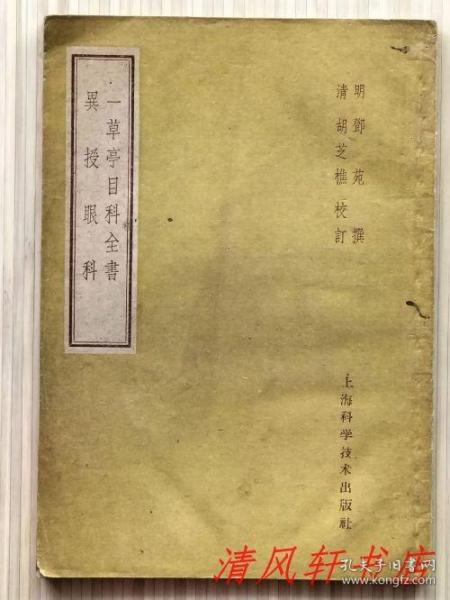 一草亭目科全書
異授眼科
明鄧苑撰
清胡芝樵校訂
上海科学技术出版社
清风轩书店
孔夫子旧书网
www.kongfz.com